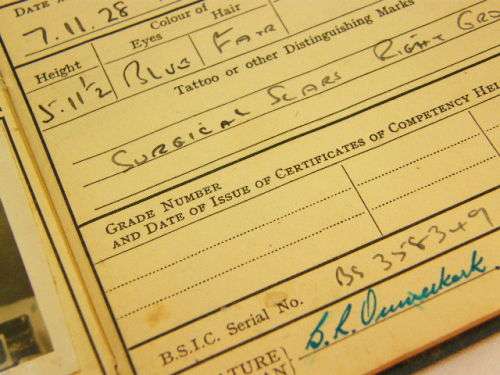 DATE A
7.11.28
Colour of
Eyes Hair
Height
5.11½ BLUE FAIR
Tattoo or other Distinguishing Marks
SURGICAL SCARS RIGHT GR
GRADE NUMBER
AND DATE OF ISSUE OF CERTIFICATES OF COMPETENCY HEL
B.S.I.C. Serial No. BS 358349